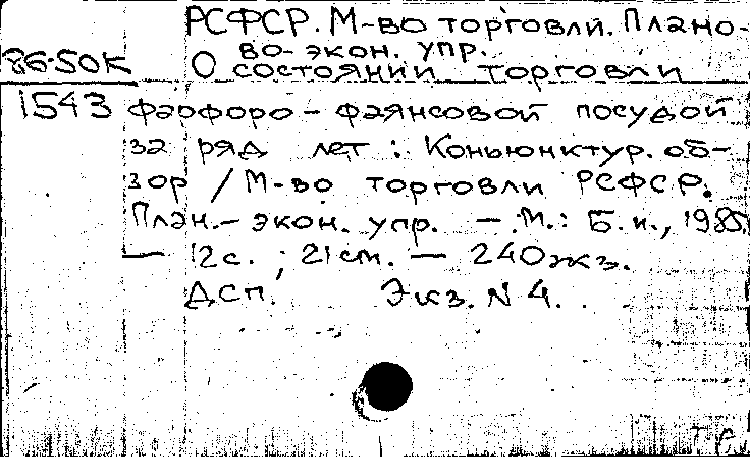 РСФСР. М-во торговли. Плано-
во-экон. упр.
86-50К
О состоянии торговли
1543 фарфоро-фаянсовой посудой
за ряд лет: Коньюнктур. об-
зор / М-во торговли РСФСР.
План.-экон. упр. — М.: Б.и., 1985.
— 12с.; 21см. — 240экз.
ДСП. Экз. N 4.